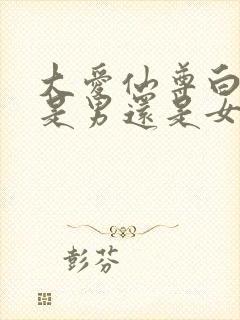 大愛仙尊白
是男還是女
彭芬